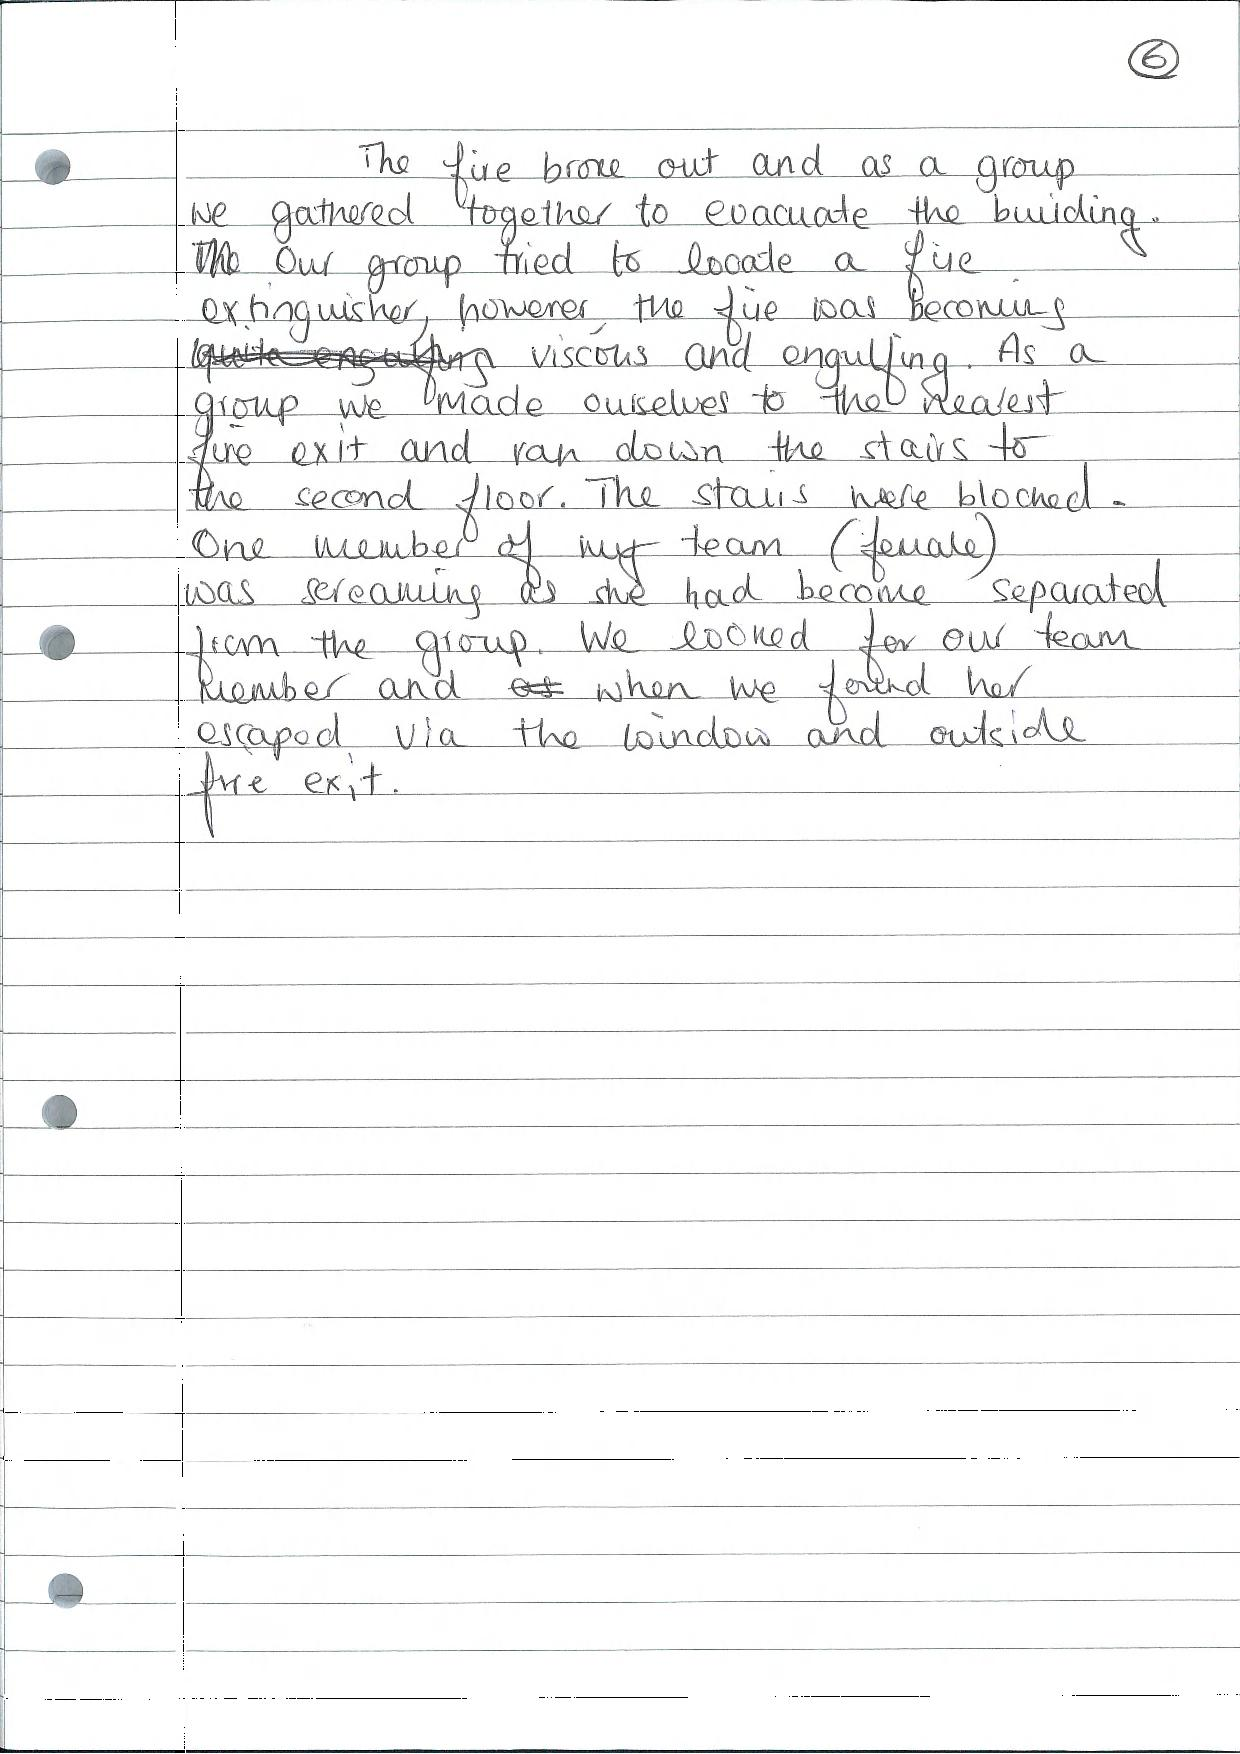 6
The fire broke out and as a group
we gathered together to evacuate the building.
The Our group tried to locate a fire
extinguisher, however, the fire was becoming
quite engulfing viscous and engulfing. As a
group we made ourselves to the nearest
fire exit and ran down the stairs to
the second floor. The stairs were blocked.
One member of my team (female)
was screaming as she had become separated
from the group. We looked for our team
member and as when we found her
escaped via the window and outside
fire exit.